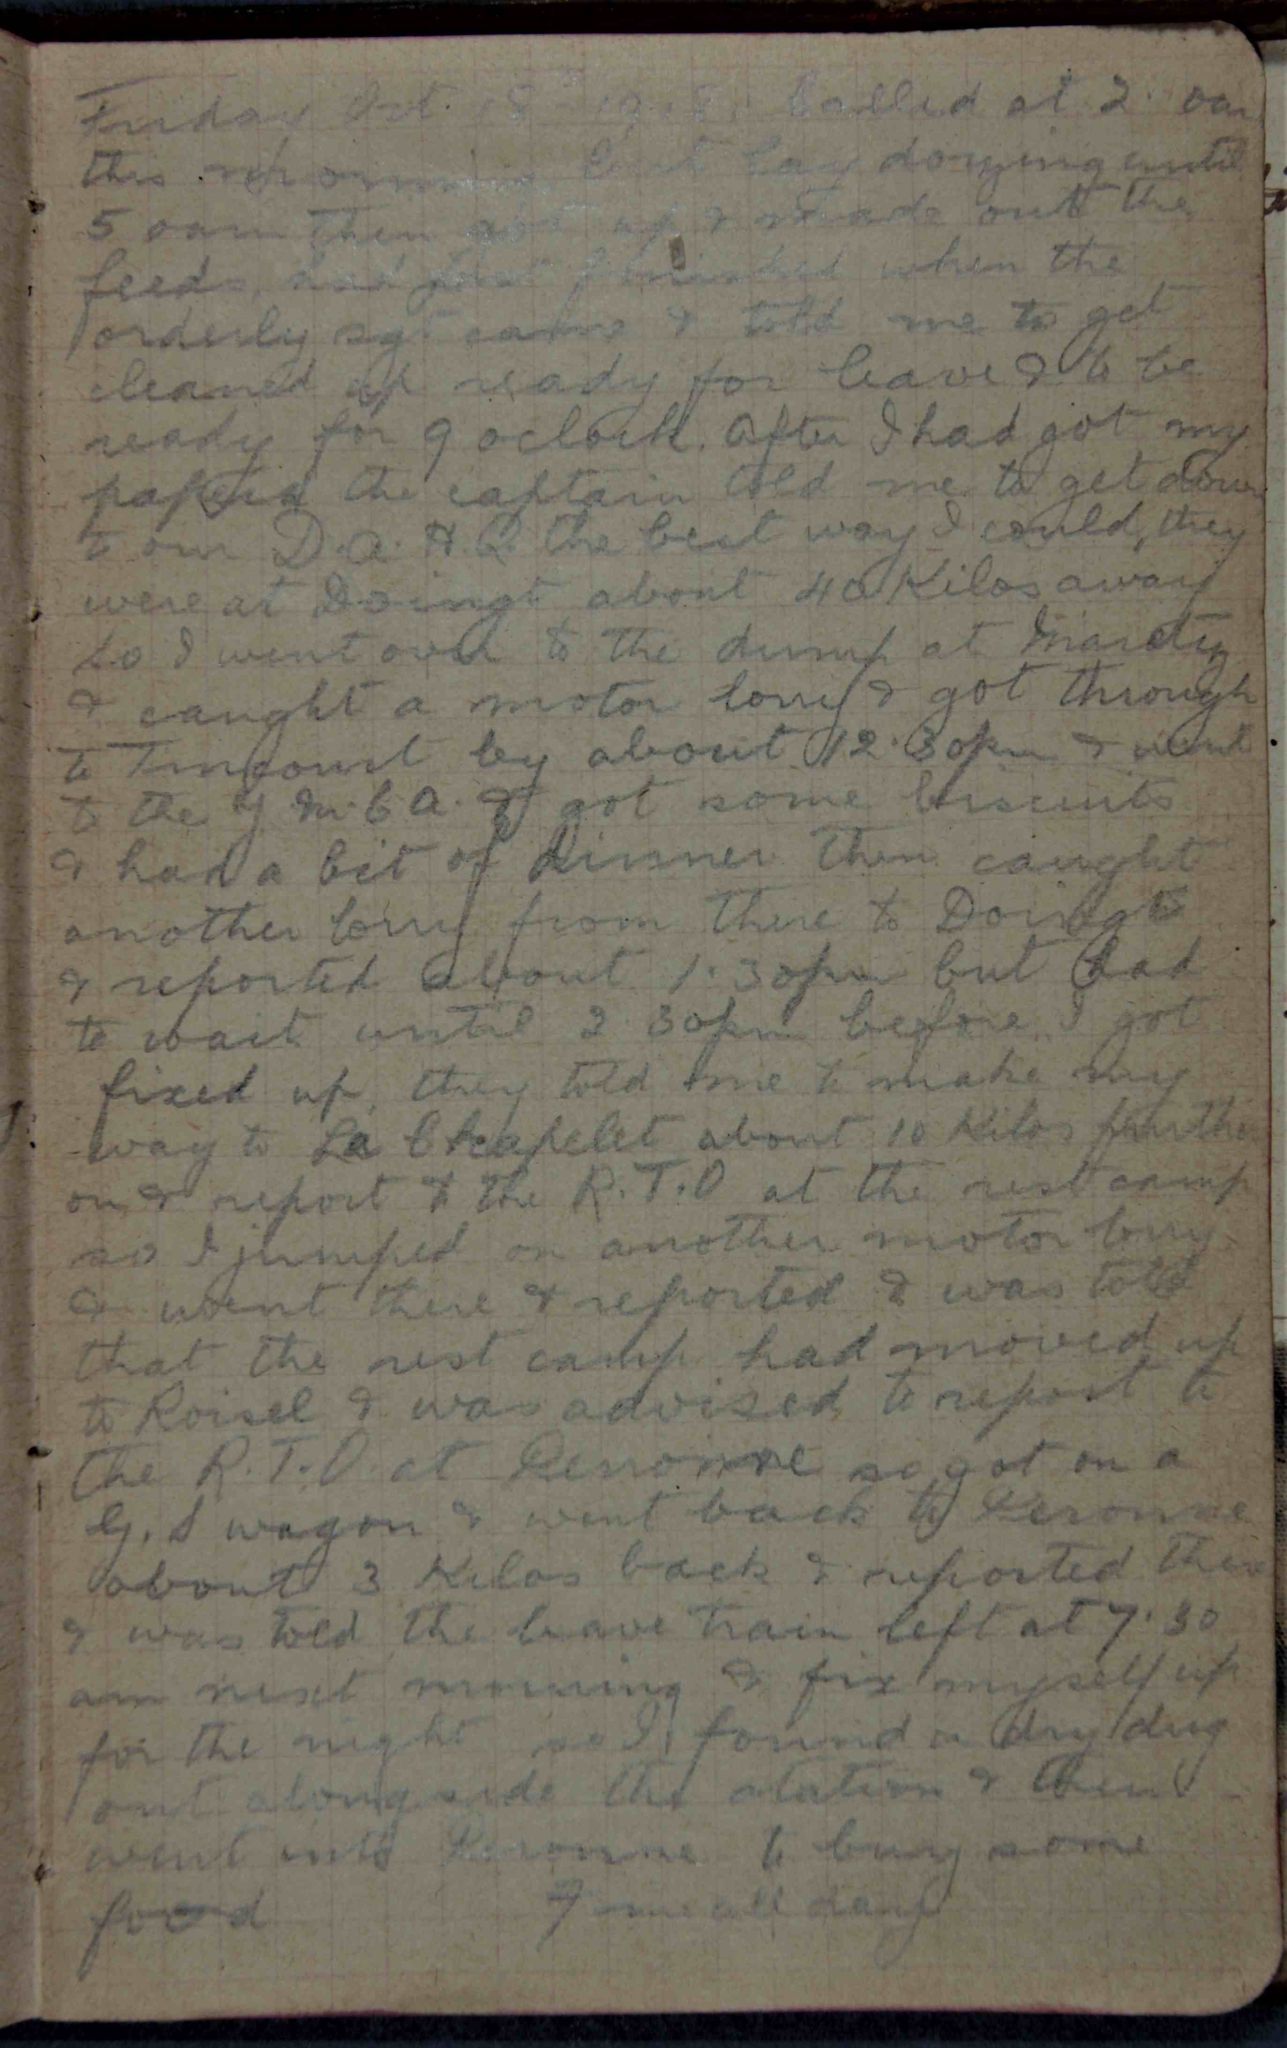 Friday Oct. 18th 1918. Called at 2. oam
this morning but lay dozing until
5 oam then got up & made out the
feeds, had just finished when the
orderly sgt came & told me to get
cleaned up ready for leave & to be
ready for 9 oclock. After I had got my
papers the captain told me to get down
to our D.A.H.Q. the best way I could, they
were at Doingt about 40 Kilos away
so I went over to the dump at
& caught a motor lorry & got through
to Tincourt by about 12.30pm & went
to the Y.M.C.A. & got some biscuits
& had a bit of dinner then caught
another lorry from there to Doingt
& reported about 1.30pm but had
to wait until 2.30pm before I got
fixed up, they told me to make my
way to La Chapelet about 10 Kilos further
on & report to the R.T.O at the rest camp
so I jumped on another motor lorry
& went there & reported & was told
that the rest camp had moved up
to Roisel & was advised to report to
the R.T.O. at Peronne so got on a
G.S wagon & went back to Peronne
about 3 Kilos back & reported there
& was told the leave train left at 7.30
am next morning & fix myself up
for the night so I found a dry dug
out alongside the station & then
went into Peronne to buy some
food Fine all day